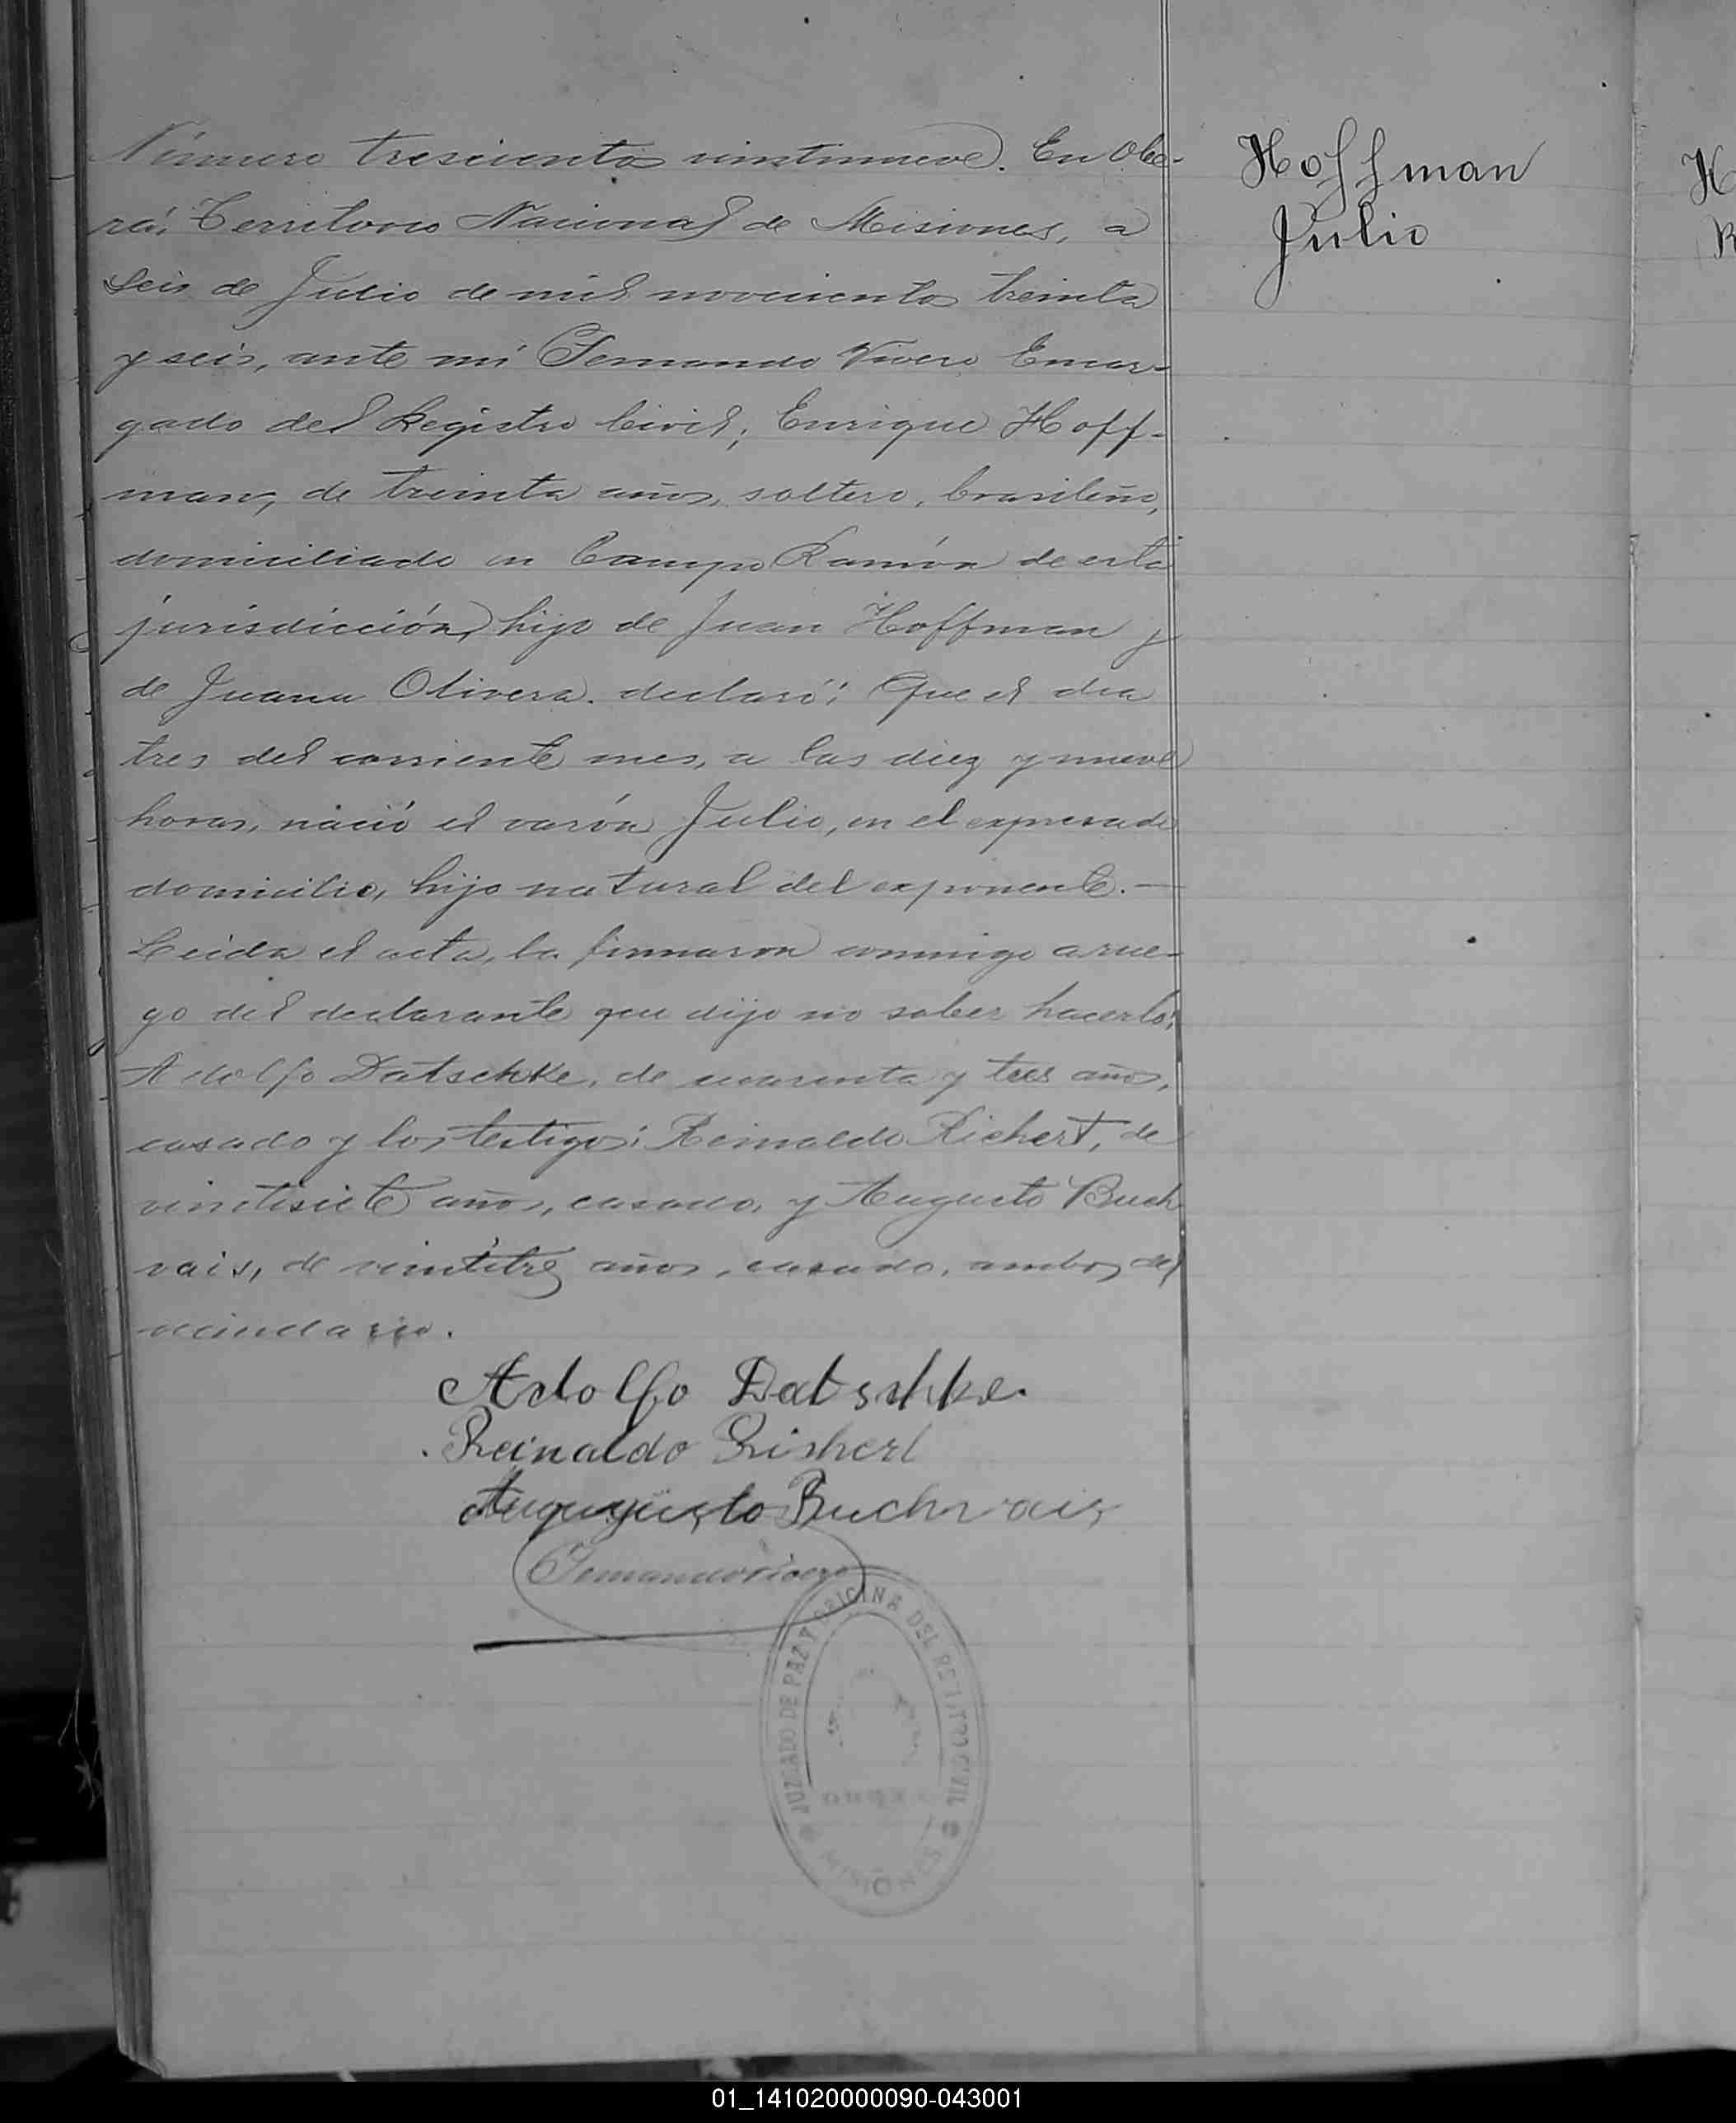 Número trescientos vinstinueve. En Obe-
rá, Territorio Nacional de Misiones, a
seis de Julio de mil novecientos treinta
y seis, ante mi Fernando Vivero Encar-
gado del Registro Civil; Enrique Hoff-
man, de treinta años, soltero, brasileño,
domiciliado en Campo Ramón de esta
jurisdicción, hijo de Juan Hoffman y
de Juana Olivera. declaró: Que el dia
tres del corriente mes, a las diez y nueve
horas, nació el varón Julio, en el expresado
domicilio, hijo natural del exponente. —
Leida el acta, la firmaron conmigo a rue-
go del declarante que dijo no saber hacerlo:
Adolfo Datschke, de cuarenta y tres años,
casado y los testigos: Reinaldo Richert, de
vintisiete años, casado, y Augusto Buch
vais, de vintitres años, casado, ambos del
vecindario.
Adolfo Datschke.
Reinaldo Rishert
Augusto Buchvais
Fernando Vivero
JUZGADO DE PAZ Y OFICINA DEL REGISTRO CIVIL
MISIONES
Hoffman
Julio
01_141020000090-043001